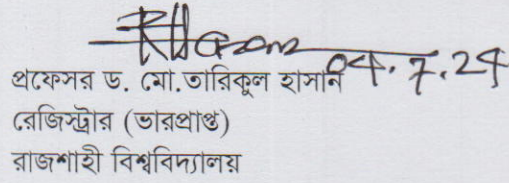 04.7.24
প্রফেসর ড. মো.তারিকুল হাসান
রেজিস্ট্রার (ভারপ্রাপ্ত)
রাজশাহী বিশ্ববিদ্যালয়